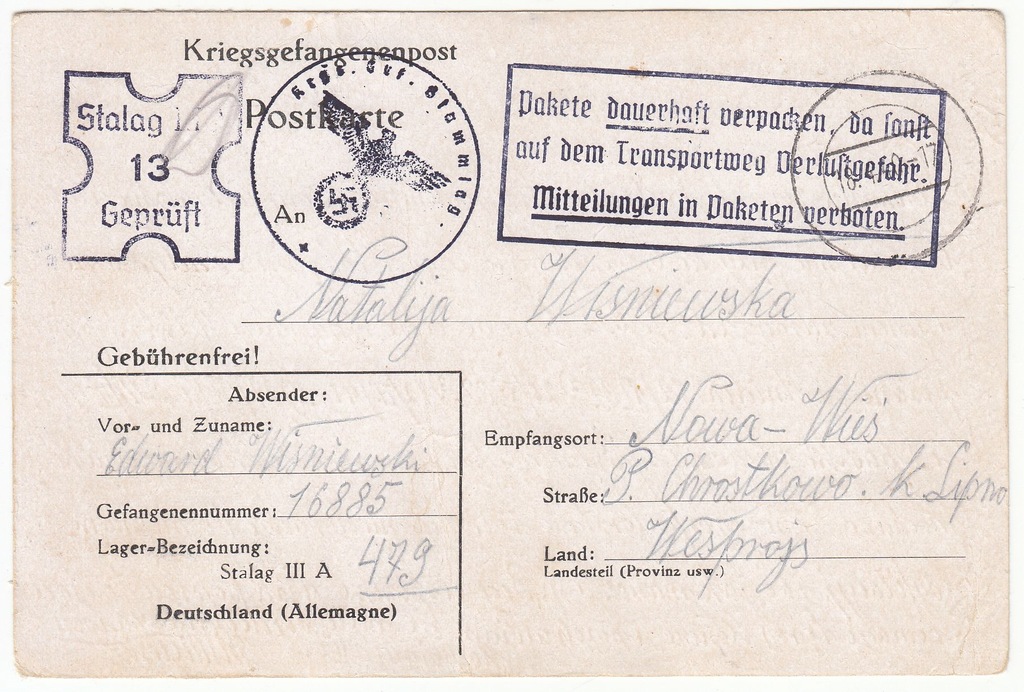 Kriegsgefangenenpost
Postkarte
Stalag
13
Geprüft
Stammlag.
Pakete dauerhaft verpacken, da sonst
auf dem Transportweg Verlustgefahr.
Mitteilungen in Paketen verboten.
An
Natalija Wiśniewska
Gebührenfrei!
Absender:
Vor- und Zuname:
Edward Wiśniewski
Gefangenennummer: 16885
Lager-Bezeichnung:
Stalag III A 479
Deutschland (Allemagne)
Empfangsort: Nowa-Wieś
Straße: P. Chrostkowo. k Lipno
Land:
Landesteil (Provinz usw.)